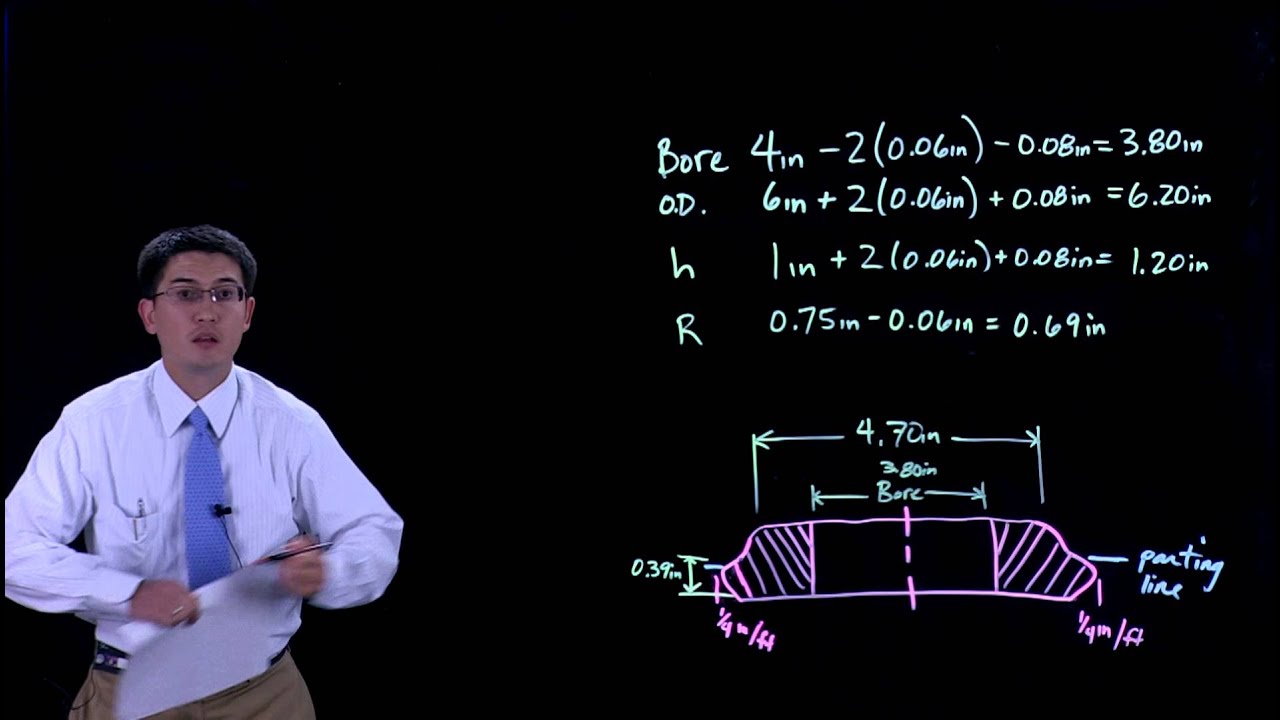 Bore 4in - 2(0.06in) - 0.08in = 3.80in
O.D. 6in + 2(0.06in) + 0.08in = 6.20in
h 1in + 2(0.06in) + 0.08in = 1.20in
R 0.75in - 0.06in = 0.69in
4.70in
3.80in
Bore
0.39in
parting
line
1/4 in/ft
1/4 in/ft